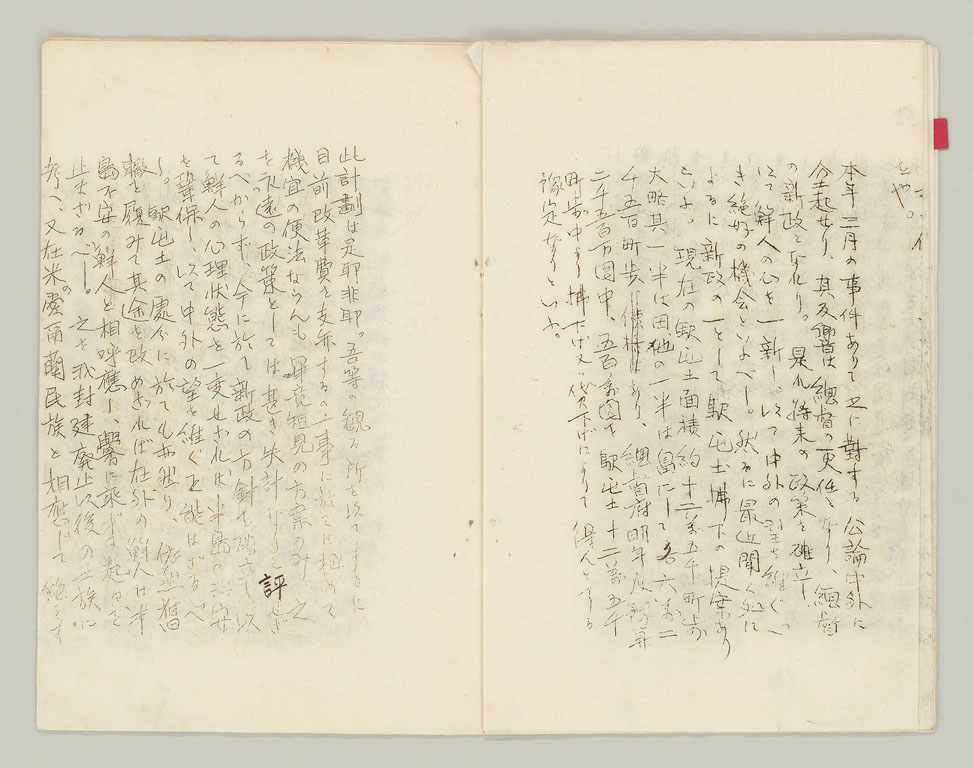 とや。
本年二月の事件ありて之に對する公論中外に
全起せり、其反響は總督の更任となり、總督
の新政となれり。是れ將来の政策を確立し
以て鮮人の心を一新し、以て中外の望を維ぐへ
き絶好の機会といふべし。然るに最近聞く処に
よるに新政の一として駅屯土拂下の提案あり
といふ。現在の駅屯土面積約十二萬五千町歩
大略其一半は田他の一半は畠にして各六万二
千五百町歩 あり、總督府明年度豫算
二千五百万圓中、五百萬圓を駅屯土十二萬五千
町歩中より拂下げ又 代の下げによりて得んとする
豫定なりといふ。
此計劃は是耶非耶。吾等の観る所を以てするに
目前改革費を支弁するの一事に於ては極めて
機宜の便法ならんも畢竟短見の方案のみ 之
を永遠の政策としては甚き失計なりと評せざ
るべからず、今に於て新政の方針を確立し以
て鮮人の心理状態を一変せざれば半島の治安
を鞏保し、以て中外の望を維ぐを能はざるべ
し。駅屯土の處分に於ても亦然り、依然舊
轍を履みて其途を改めざれば在外の鮮人は半
島不安の鮮人と相呼應し、釁に乗じ起らで
止まざるべし。之を我封建廢止以後の士族に
考へ、又在米愛爾蘭民族と相應じて絶えず